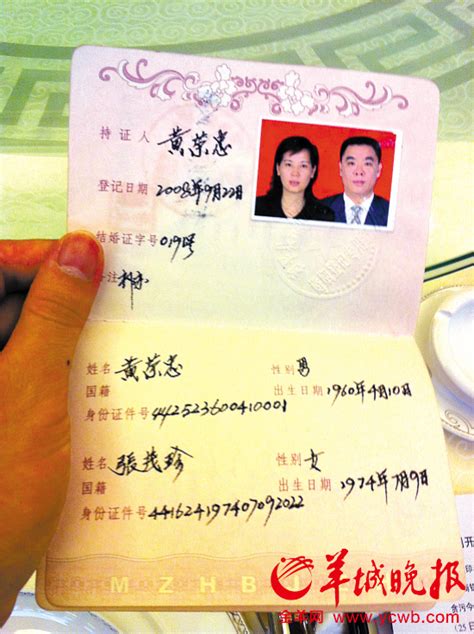 持证人 黄荣忠
登记日期 2008年9月22日
结婚证字号 019号
备注 补办
姓名 黄荣忠 性别 男
国籍 出生日期 1960年4月10日
身份证件号 442523600410001
姓名 張茂珍 性别 女
国籍 出生日期 1974年7月9日
身份证件号 441624197407092022
MZHB
羊城晚报
金羊网 www.ycwb.com